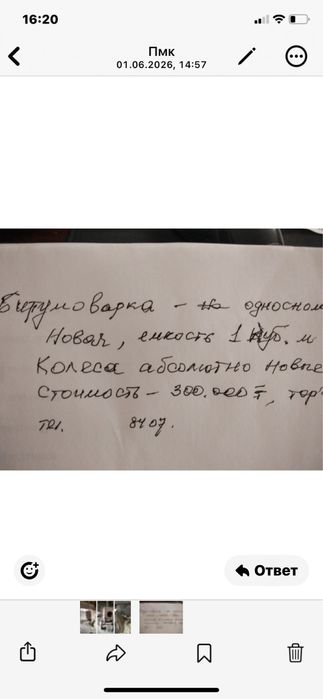 16:20
Пмк
01.06.2026, 14:57
Битумоварка - на односном
Новая, емкость 1 куб. м
Колеса абсолютно новые
Стоимость - 300.000 ₸, тор
тел. 8407.
Ответ